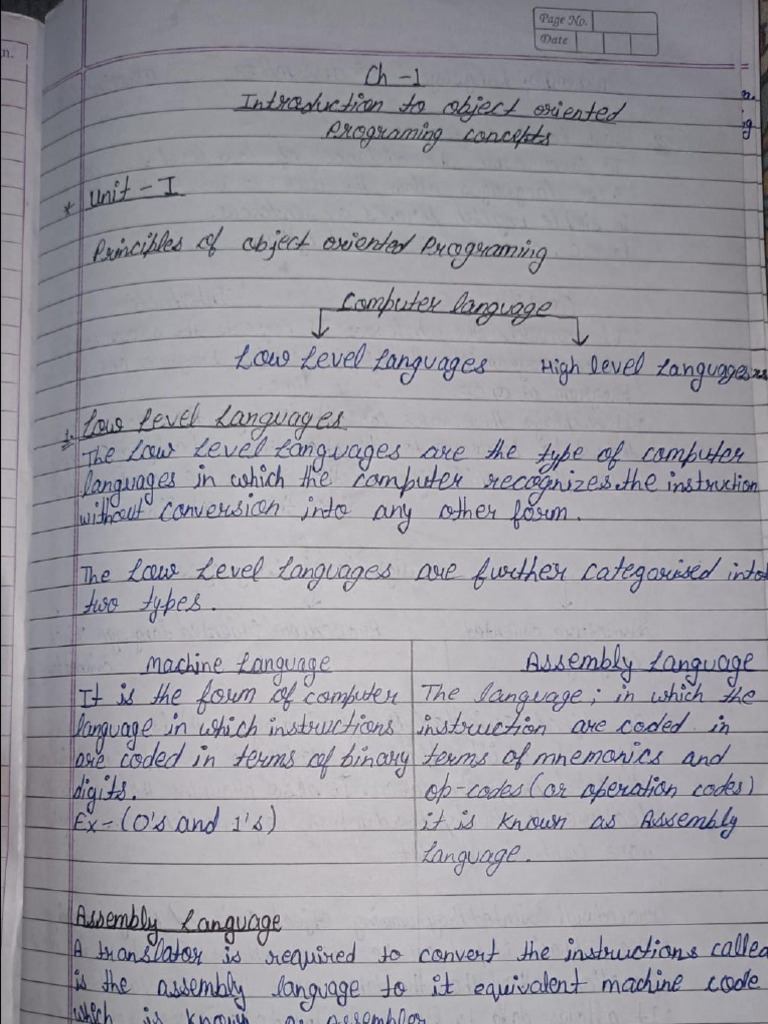 Page No.
Date
n.
Ch -1
Introduction to object oriented
Programing concepts
* Unit - I
Principles of object oriented Programing
Computer language
Low Level Languages High level Languages
1. Low Level Languages
The Low Level Languages are the type of computer
languages in which the computer recognizes the instruction
without conversion into any other form.
The Low Level Languages are further categorised into
two types.
Machine Language
It is the form of computer
language in which instructions
are coded in terms of binary
digits.
Ex- (0's and 1's)
Assembly Language
The language; in which the
instruction are coded in
terms of mnemonics and
op-codes (or operation codes)
it is known as Assembly
Language.
Assembly Language
A translator is required to convert the instructions called
is the assembly language to it equivalent machine code
which is known as Assembler